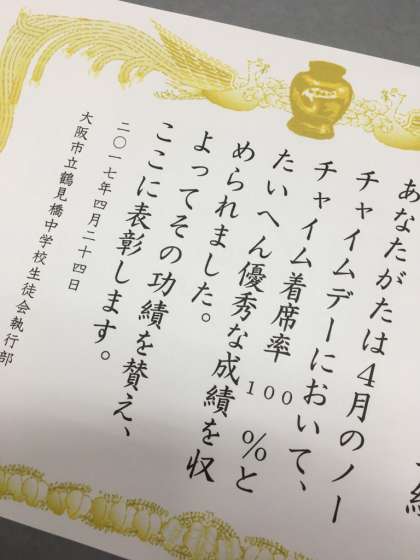 績
あなたがたは4月のノー
チャイムデーにおいて、
チャイム着席率100%と
たいへん優秀な成績を収
められました。
よってその功績を賛え、
ここに表彰します。
二〇一七年四月二十四日
大阪市立鶴見橋中学校生徒会執行部